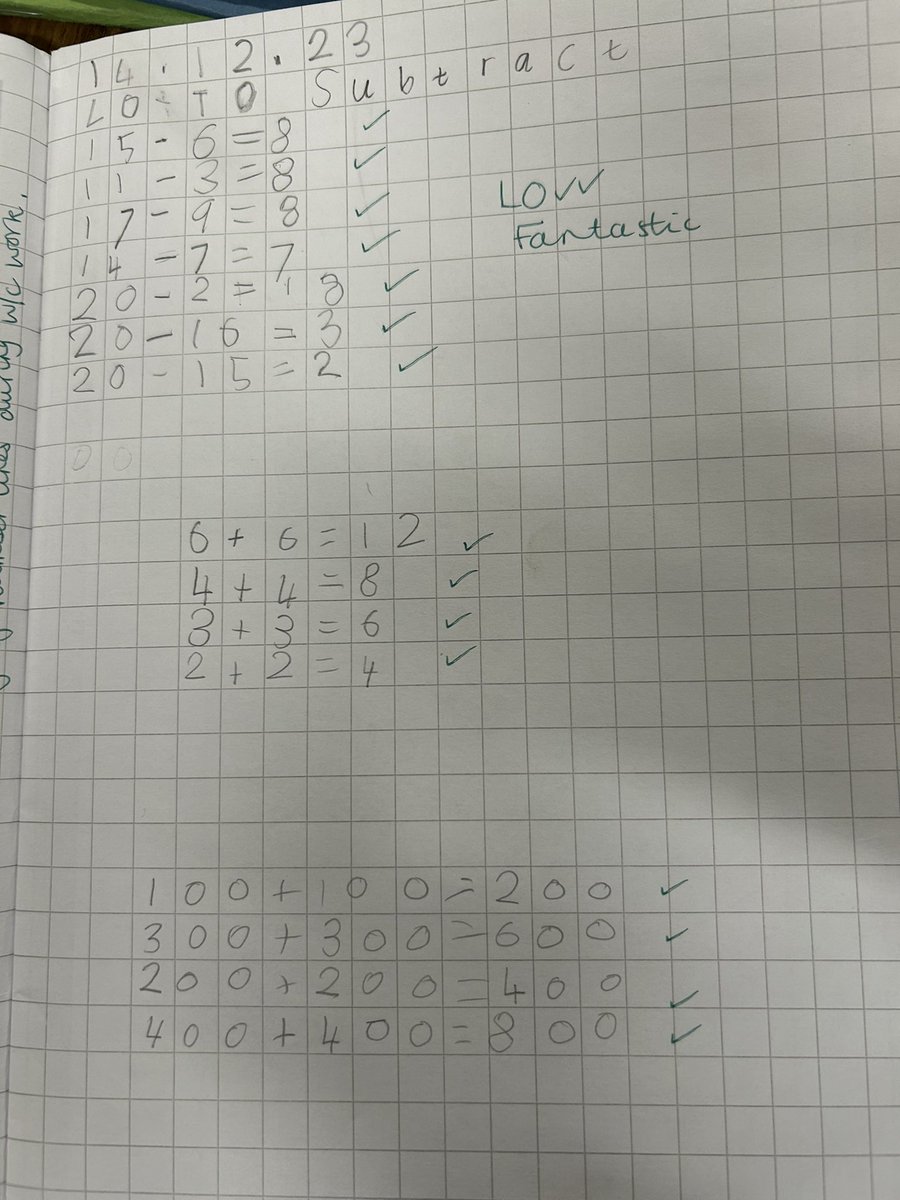 14.12.23
LO: TO Subtract
15 - 6 = 8 ✓
11 - 3 = 8 ✓
17 - 9 = 8 ✓
14 - 7 = 7 ✓
20 - 2 = 18 ✓
20 - 16 = 3 ✓
20 - 15 = 2 ✓
LO✓✓
Fantastic
00
6 + 6 = 12 ✓
4 + 4 = 8 ✓
3 + 3 = 6 ✓
2 + 2 = 4 ✓
100 + 100 = 200 ✓
300 + 300 = 600 ✓
200 + 200 = 400 ✓
400 + 400 = 800 ✓
during w/c work.